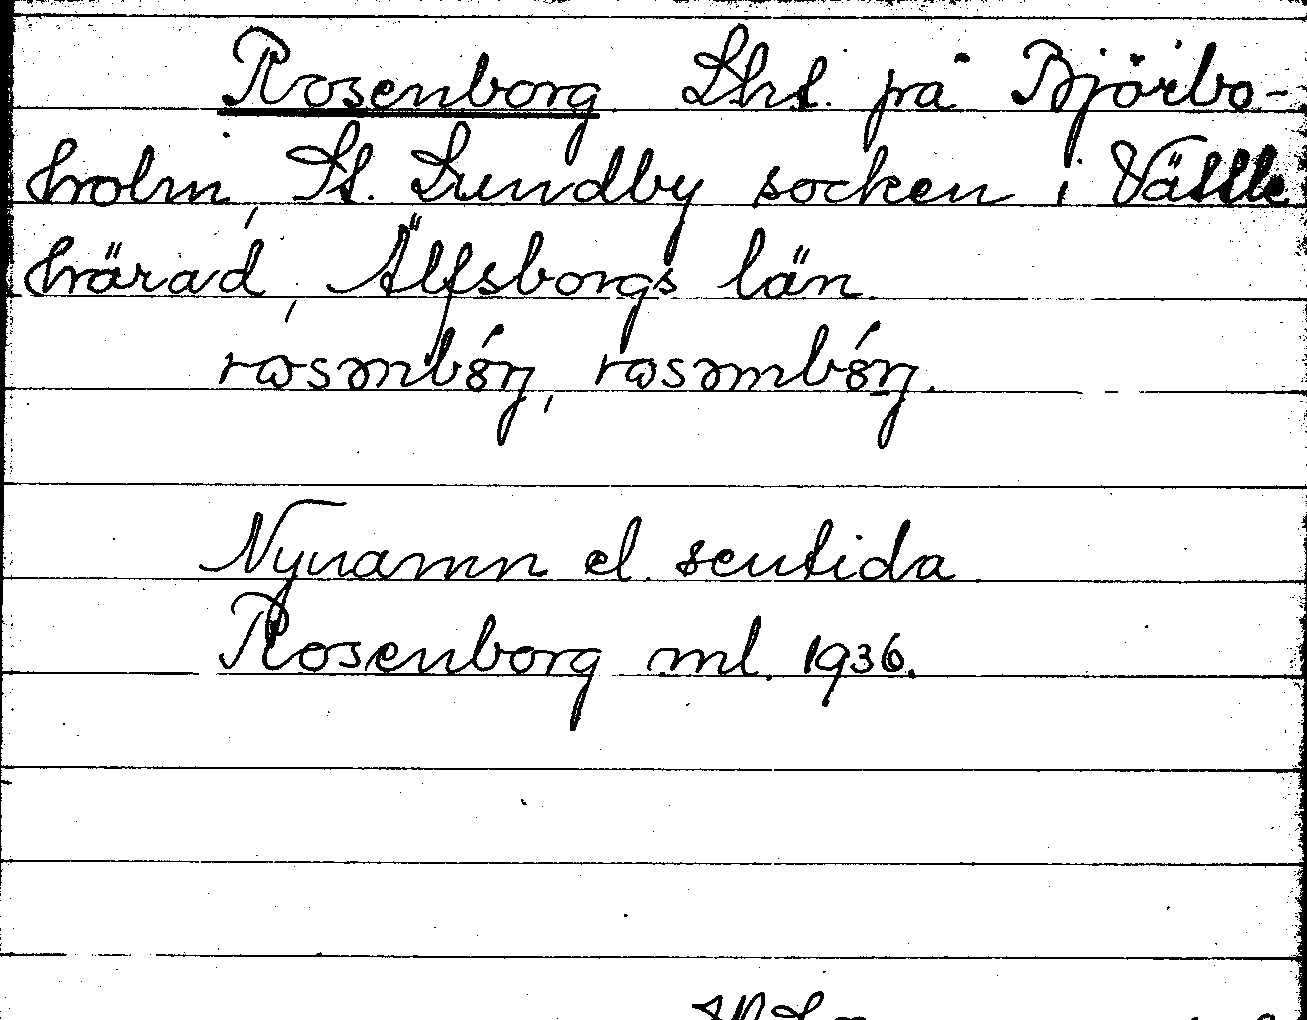 Rosenborg Lht. på Björbo-
holm, St. Lundby socken i Vättle
härad, Älfsborgs län.
Nynamn el. sentida
Rosenborg ml. 1936.